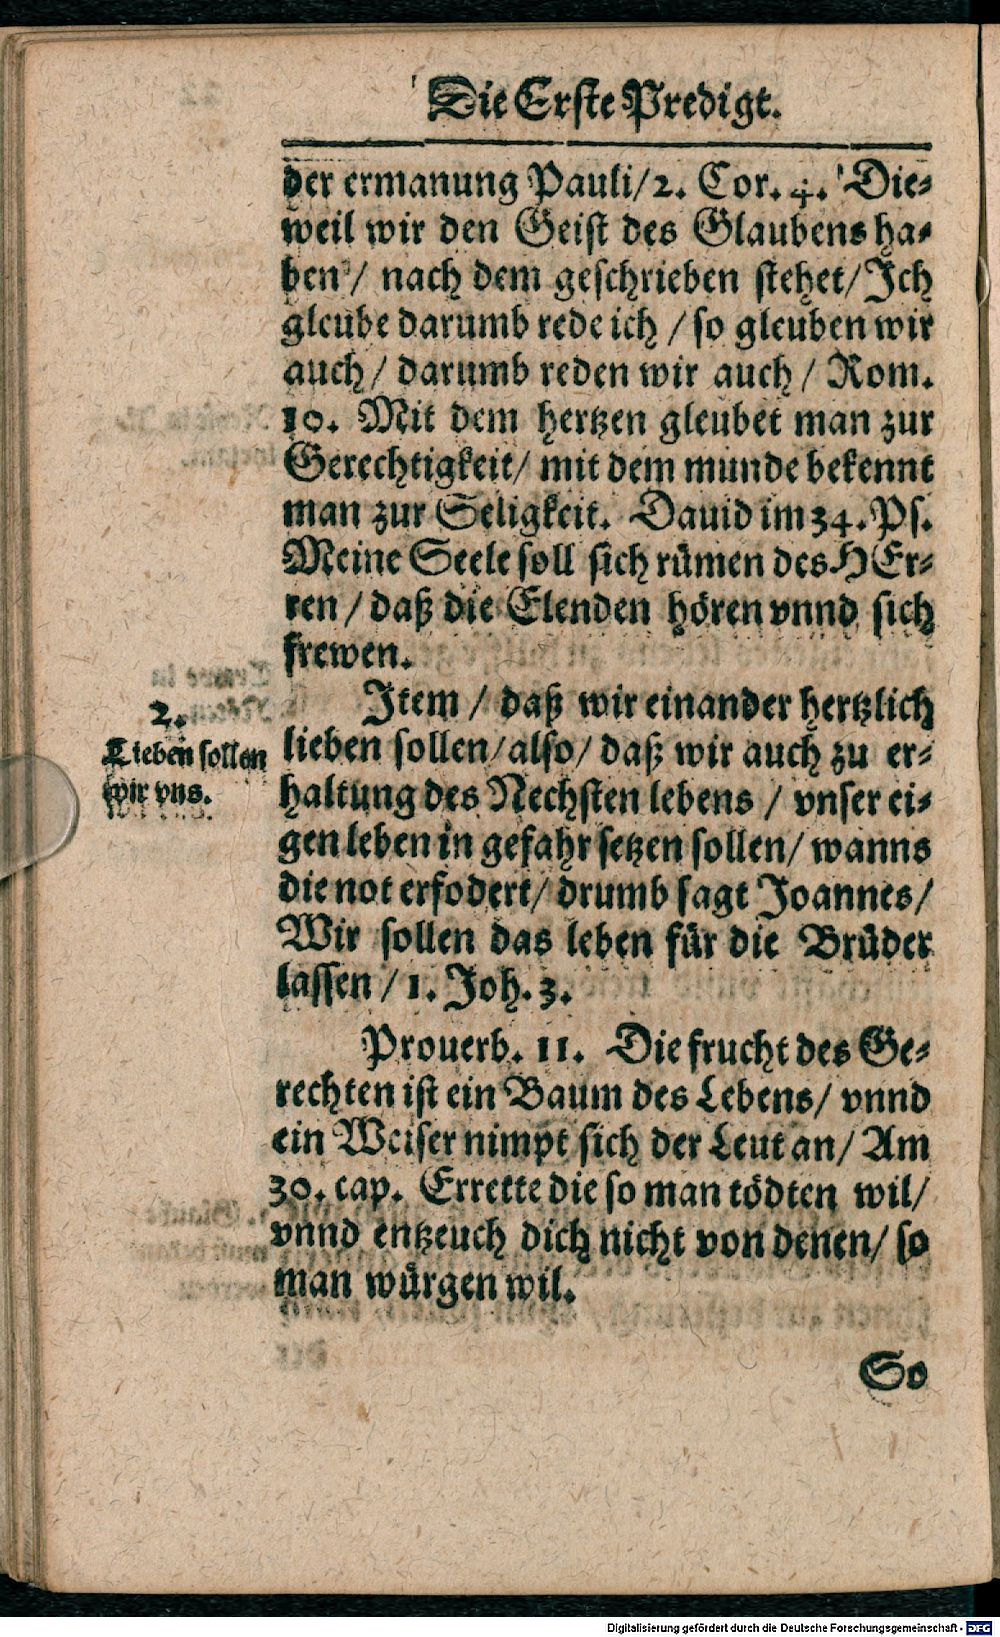 Die Erste Predigt.
der ermanung Pauli/2. Cor. 4. Die-
weil wir den Geist des Glaubens ha-
ben / nach dem geschrieben stehet/Ich
gleube darumb rede ich / so gleuben wir
auch / darumb reden wir auch / Rom.
10. Mit dem hertzen gleubet man zur
Gerechtigkeit/ mit dem munde bekennt
man zur Seligkeit. Dauid im 34. Ps.
Meine Seele soll sich rümen des HEr-
ren / daß die Elenden hören vnnd sich
frewen.
2.
Lieben sollen
wir vns.
Item / daß wir einander hertzlich
lieben sollen/also/ daß wir auch zu er-
haltung des Nechsten lebens / vnser ei-
gen leben in gefahr setzen sollen/ wanns
die not erfodert/ drumb sagt Joannes/
Wir sollen das leben für die Brüder
lassen / 1. Joh. 3.
Prouerb. 11. Die frucht des Ge-
rechten ist ein Baum des Lebens/ vnnd
ein Weiser nimpt sich der Leut an/ Am
30. cap. Errette die so man tödten wil/
vnnd entzeuch dich nicht von denen/ so
man würgen wil.
So
Digitalisierung gefördert durch die Deutsche Forschungsgemeinschaft - DFG